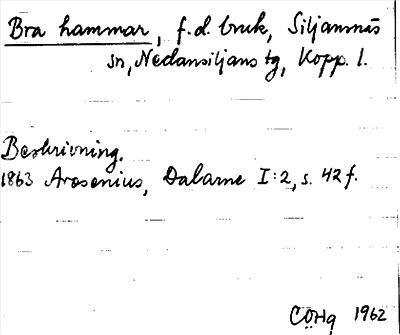 Bra hammar, f.d. bruk, Siljansnäs
sn, Nedansiljans tg, Kopp. l.
Beskrivning.
1863 Arosenius, Dalarne I:2, s. 42 f.
CÖHg 1962